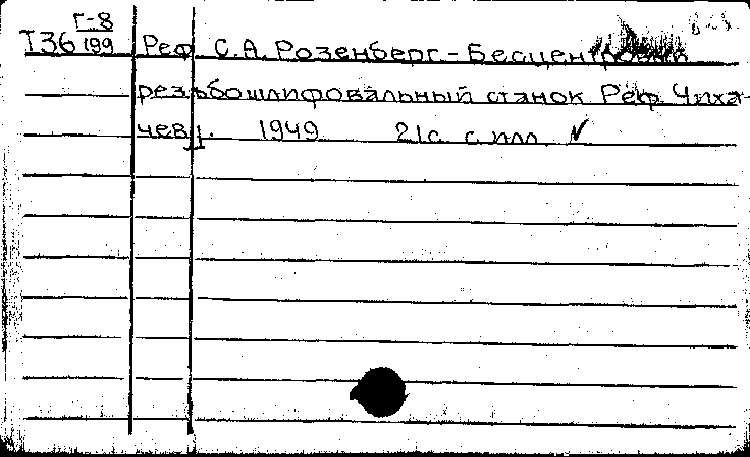 Г-8
Т36 199 Реф С.А. Розенберг - Бесцентровый
резьбошлифовальный станок Реф Чиха-
чев. 1949 21с. с илл